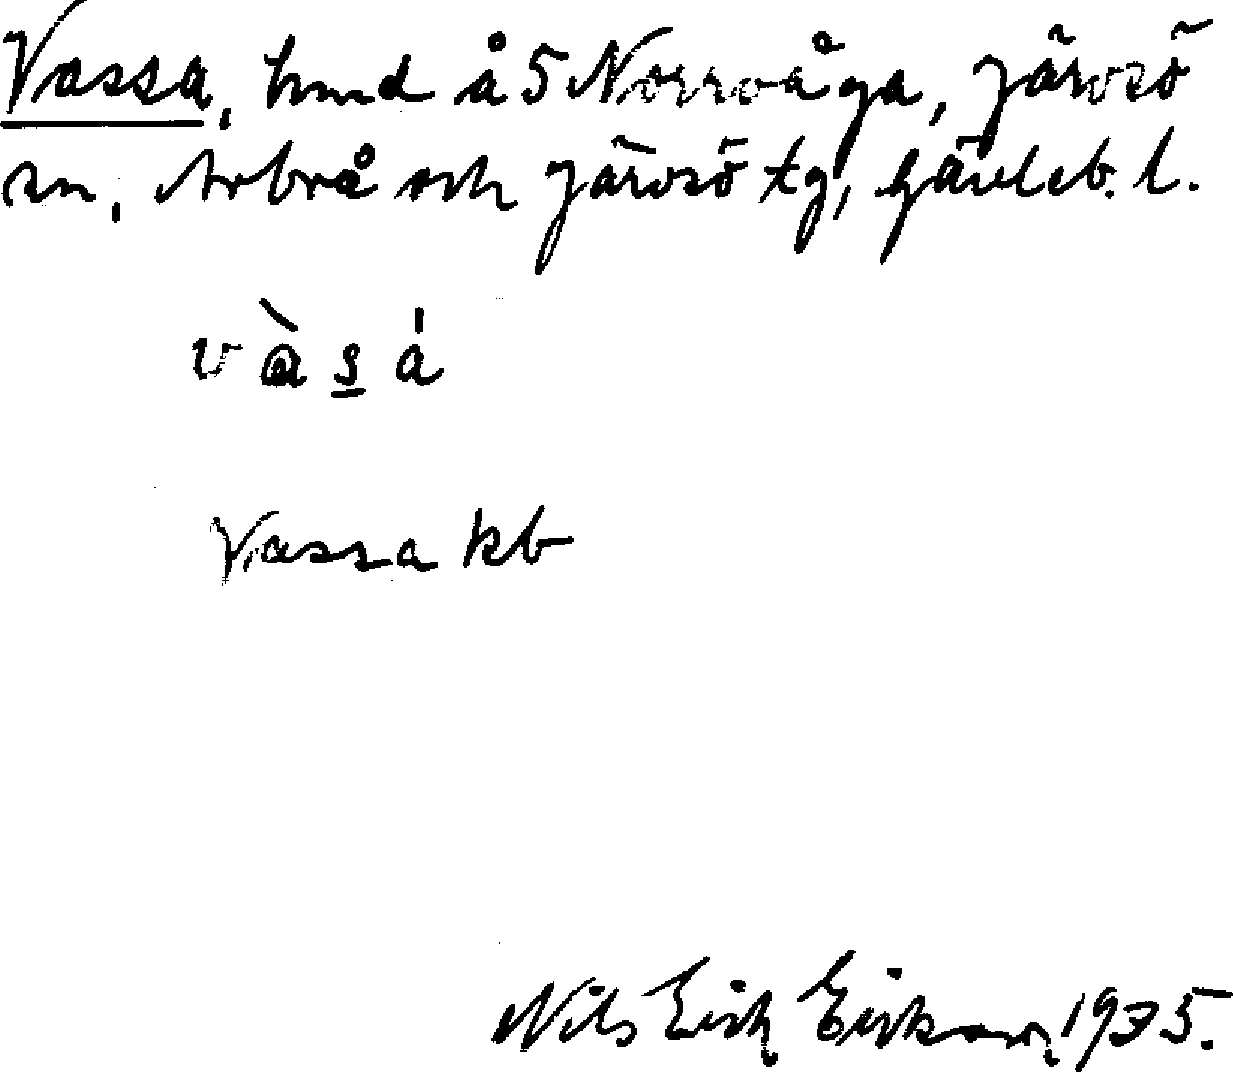 Vassa, hmd å 5 Norrvåga, Järvsö
sn, Arbrå och Järvsö tg, Gävleb. l.
v à s á
Vassa kb
Nils Eirik Eirksson, 1935.